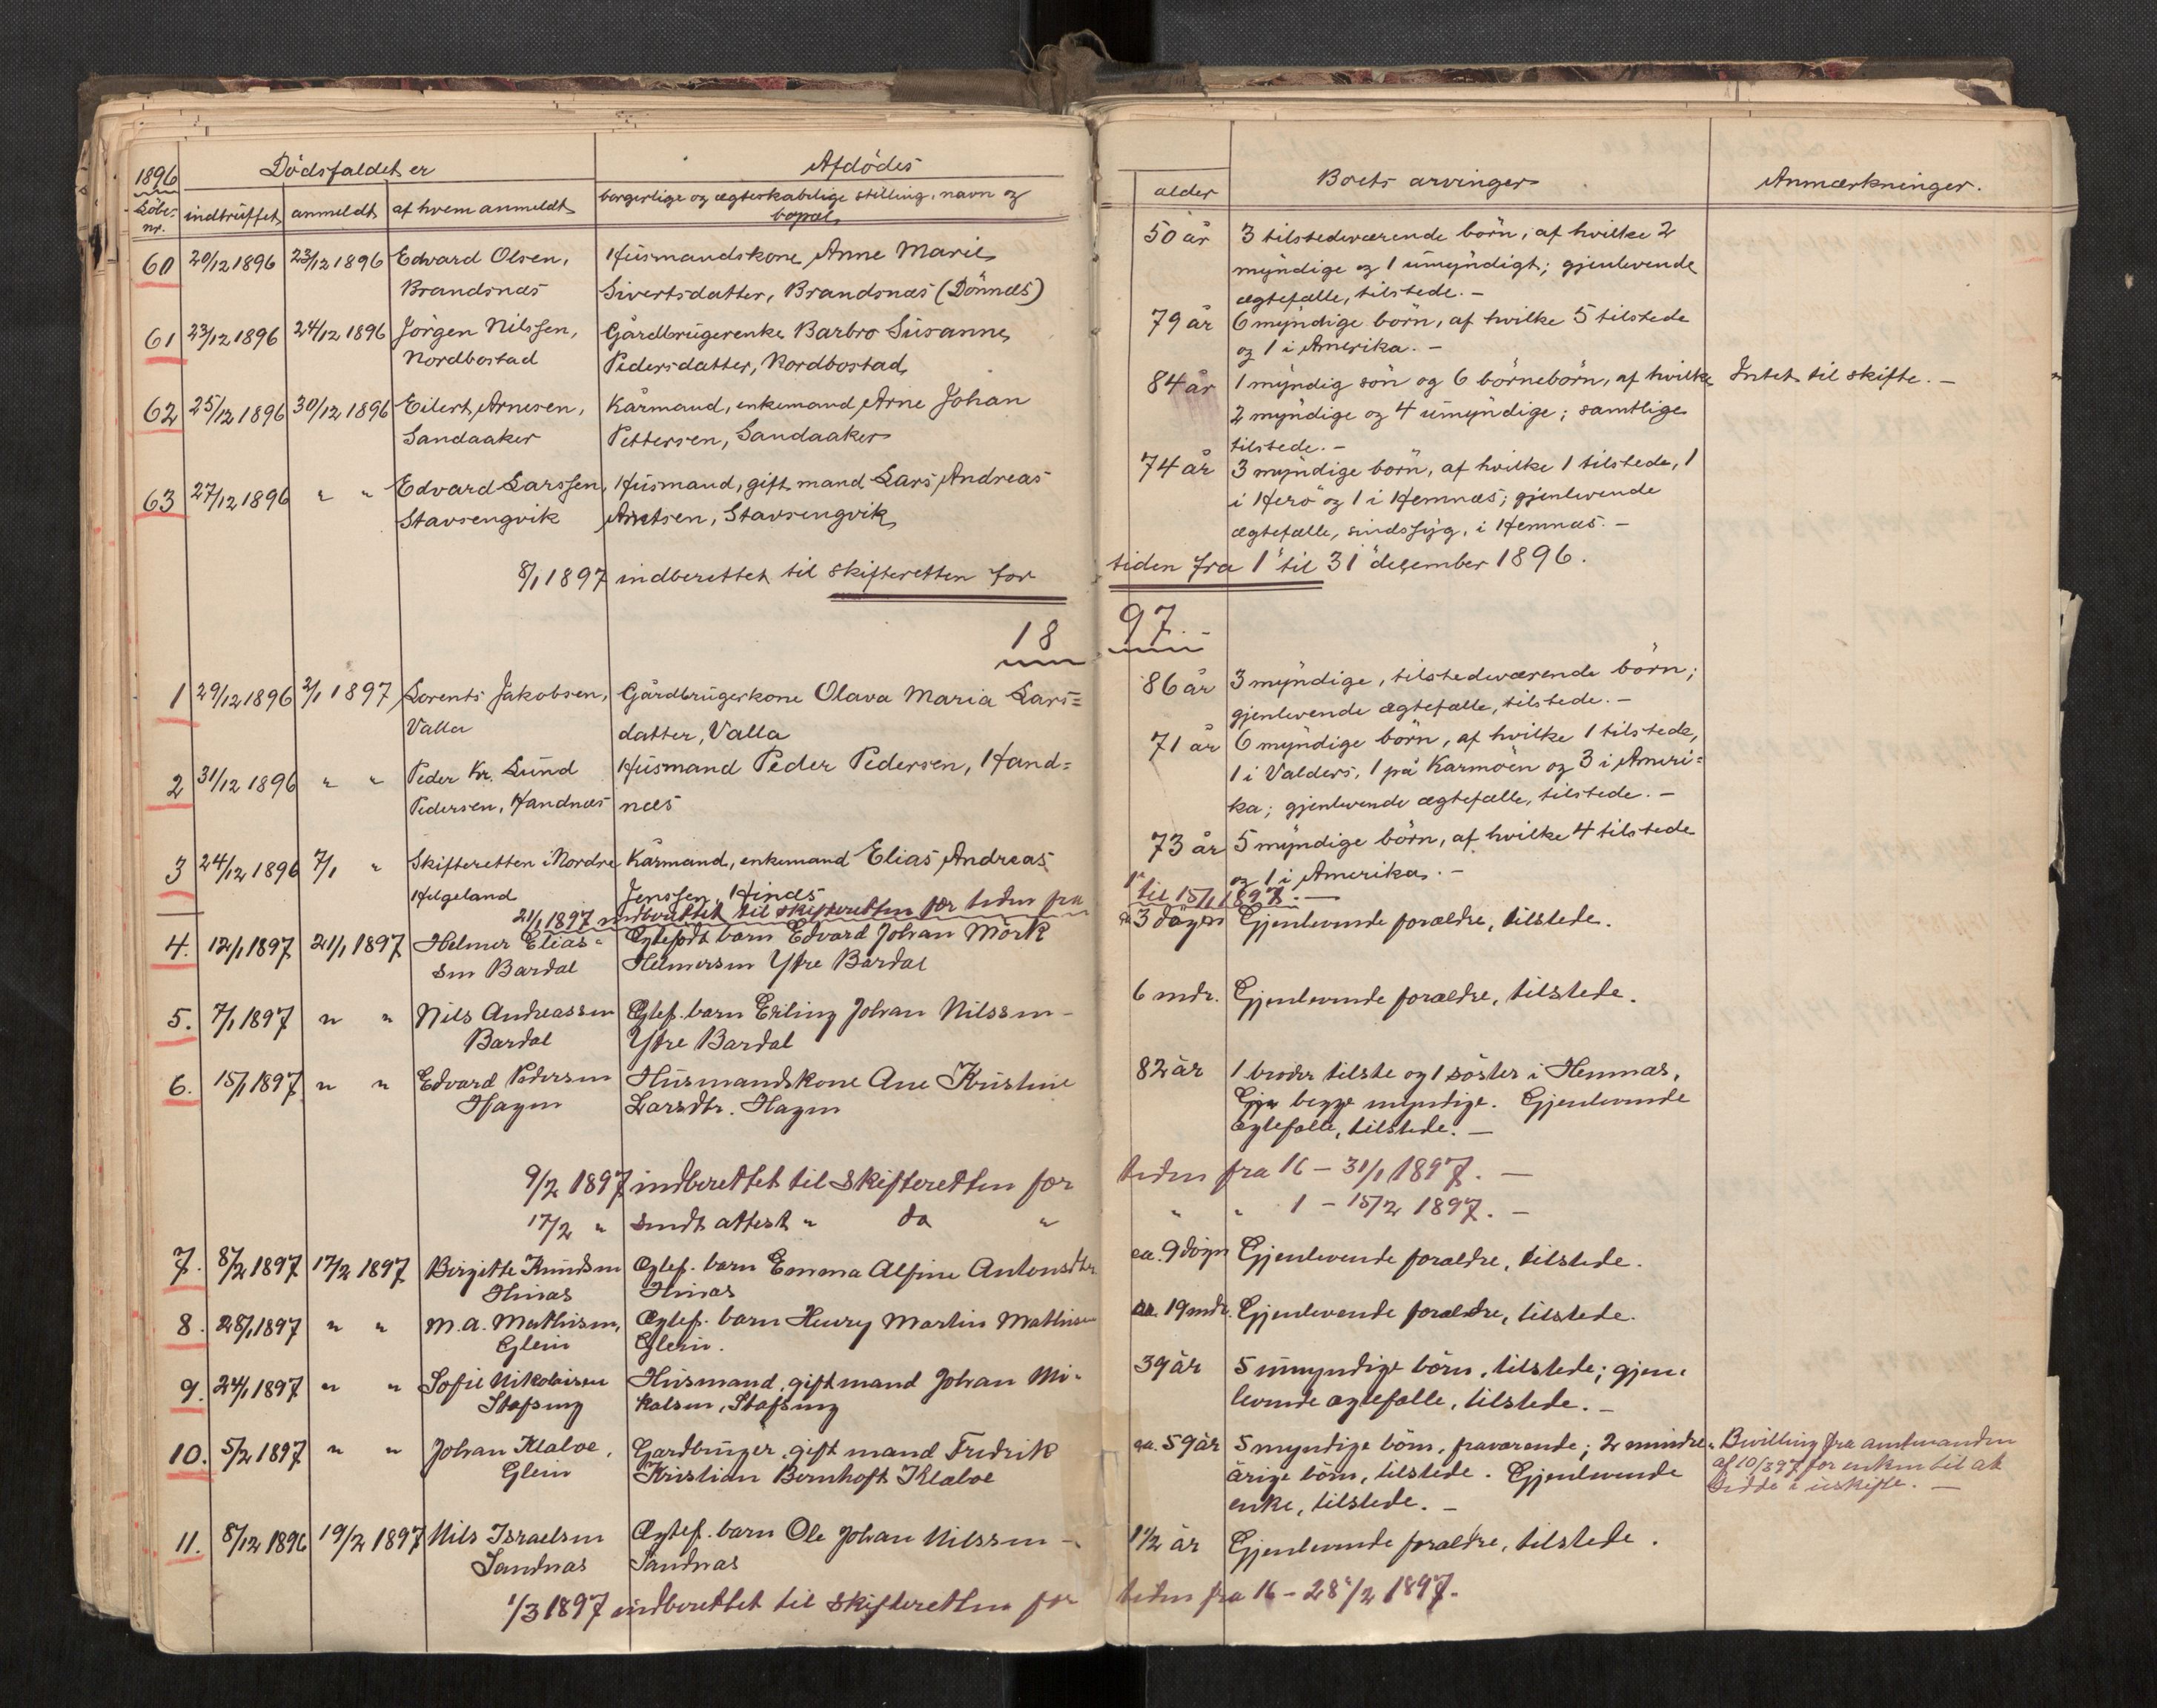 1896
Dödsfaldet er
Afdödes
alder
Boets arvinger
Anmærkninger.
Löbe-nr.
indtruffet
anmeldt
af hvem anmeldt
borgerlige og ægteskabelige stilling, navn og
bopæl
60 20/12 1896 23/12 1896 Edvard Olsen, Husmandskone Anne Marie 50 år 3 tilstedeværende börn, af hvilke 2
Brandsnæs Sivertsdatter, Brandsnæs (Dönnæs) myndige og 1 umyndigt; gjenlevende
ægtefælle, tilstede. —
61 23/12 1896 24/12 1896 Jörgen Nilssen, Gårdbrugerenke Barbro Susanne 79 år 6 myndige börn, af hvilke 5 tilstede
Nordbostad Pedersdatter, Nordbostad og 1 i Amerika. —
62 25/12 1896 30/12 1896 Eilert Arnesen, Kårmand, enkemand Arne Johan 84 år 1 myndig sön og 6 börnebörn, af hvilke Intet til skifte. —
Sandaaker Pettersen, Sandaaker 2 myndige og 4 umyndige; samtlige
tilstede. —
63 27/12 1896 " " Edvard Larssen, Husmand, gift mand Lars Andreas 74 år 3 myndige börn, af hvilke 1 tilstede, 1
Stavsengvik Arntsen, Stavsengvik i Herö og 1 i Hemnæs; gjenlevende
ægtefælle, sindssyg, i Hemnæs. —
8/1 1897 indberettet til skifteretten for tiden fra 1 til 31 desember 1896.
1897. -
1 29/12 1896 2/1 1897 Lorents Jakobsen, Gårdbrugerkone Olava Maria Lars= 86 år 3 myndige, tilstedeværende börn;
Valla datter, Valla gjenlevende ægtefælle, tilstede. —
2 31/12 1896 " " Peder Kr. Lund Husmand Peder Pedersen, Hand= 71 år 6 myndige börn, af hvilke 1 tilstede,
Pedersen, Handnæs næs 1 i Valders, 1 på Karmöen og 3 i Ameri=
ka; gjenlevende ægtefælle, tilstede. —
3 24/12 1896 7/1 " Skifteretten i Nordre Kårmand, enkemand Elias Andreas 73 år 5 myndige börn, af hvilke 4 tilstede
Helgeland Jenssen, Hinæs og 1 i Amerika. —
21/1 1897 indberettet til skifteretten for tiden fra 1 til 15/1 1897. —
4. 12/1 1897 21/1 1897 Helmer Elias- Egtefödt barn Edvard Johan Mörk ca 3 dögn Gjenlevende forældre, tilstede.
sen Bardal Helmersen Ytre Bardal
5. 7/1 1897 " " Nils Andreassen Egtef. barn Erling Johan Nilssen - 6 mdr. Gjenlevende forældre, tilstede.
Bardal Ytre Bardal
6. 15/1 1897 " " Edvard Pedersen Husmandskone Ane Kristine 82 år 1 broder tilste og 1 söster i Hemnæs,
Hagen Larsdtr. Hagen Gjen begge myndige. Gjenlevende
ægtefælle, tilstede. —
9/2 1897 indberettet til skifteretten for tiden fra 16 - 31/1 1897. —
17/2 " sendt attest " do " " " 1 - 15/2 1897. —
7. 8/2 1897 17/2 1897 Birgitte Knudsen Ægtef. barn Emma Alfine Antonsdtr ca. 9 dögn Gjenlevende forældre, tilstede.
Hinæs Hinæs
8. 28/1 1897 " " M. A. Mathisen, Ægtef. barn Henry Martin Mathisen ca. 19 mdr. Gjenlevende forældre, tilstede.
Glein Glein.
9. 24/1 1897 " " Sofie Nikolaisen Husmand, gift mand Johan Mi- 39 år 5 umyndige börn, tilstede; gjen-
Stafseng kalsen, Stafseng levende ægtefælle, tilstede. —
10. 5/2 1897 " " Johan Klæboe, Gardbruger, gift mand Fredrik ca. 59 år 5 myndige börn, fraværende; 2 mindre- Bevilling fra amtmanden
Glein Kristian Bernhoft Klæboe årige börn, tilstede. Gjenlevende af 10/3 97 for enken til at
enke, tilstede. — sidde i uskifte. —
11. 8/12 1896 19/2 1897 Nils Israelsen Ægtef. barn Ole Johan Nilssen - 1 1/2 år Gjenlevende forældre, tilstede.
Sandnæs Sandnæs
1/3 1897 indberettet til skifteretten for tiden fra 16 - 28/2 1897.